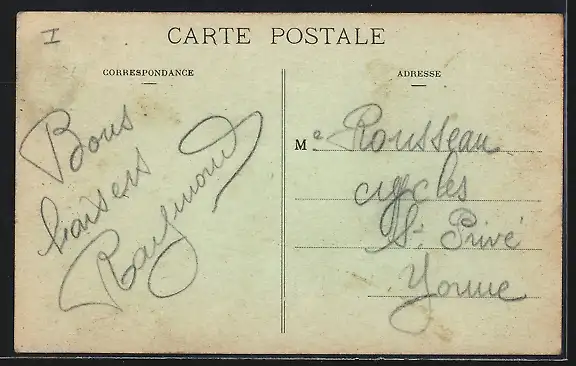 I
CARTE POSTALE
CORRESPONDANCE
Bons
baisers
Raymond
ADRESSE
Me Rousseau
cycles
St Privé
Yonne